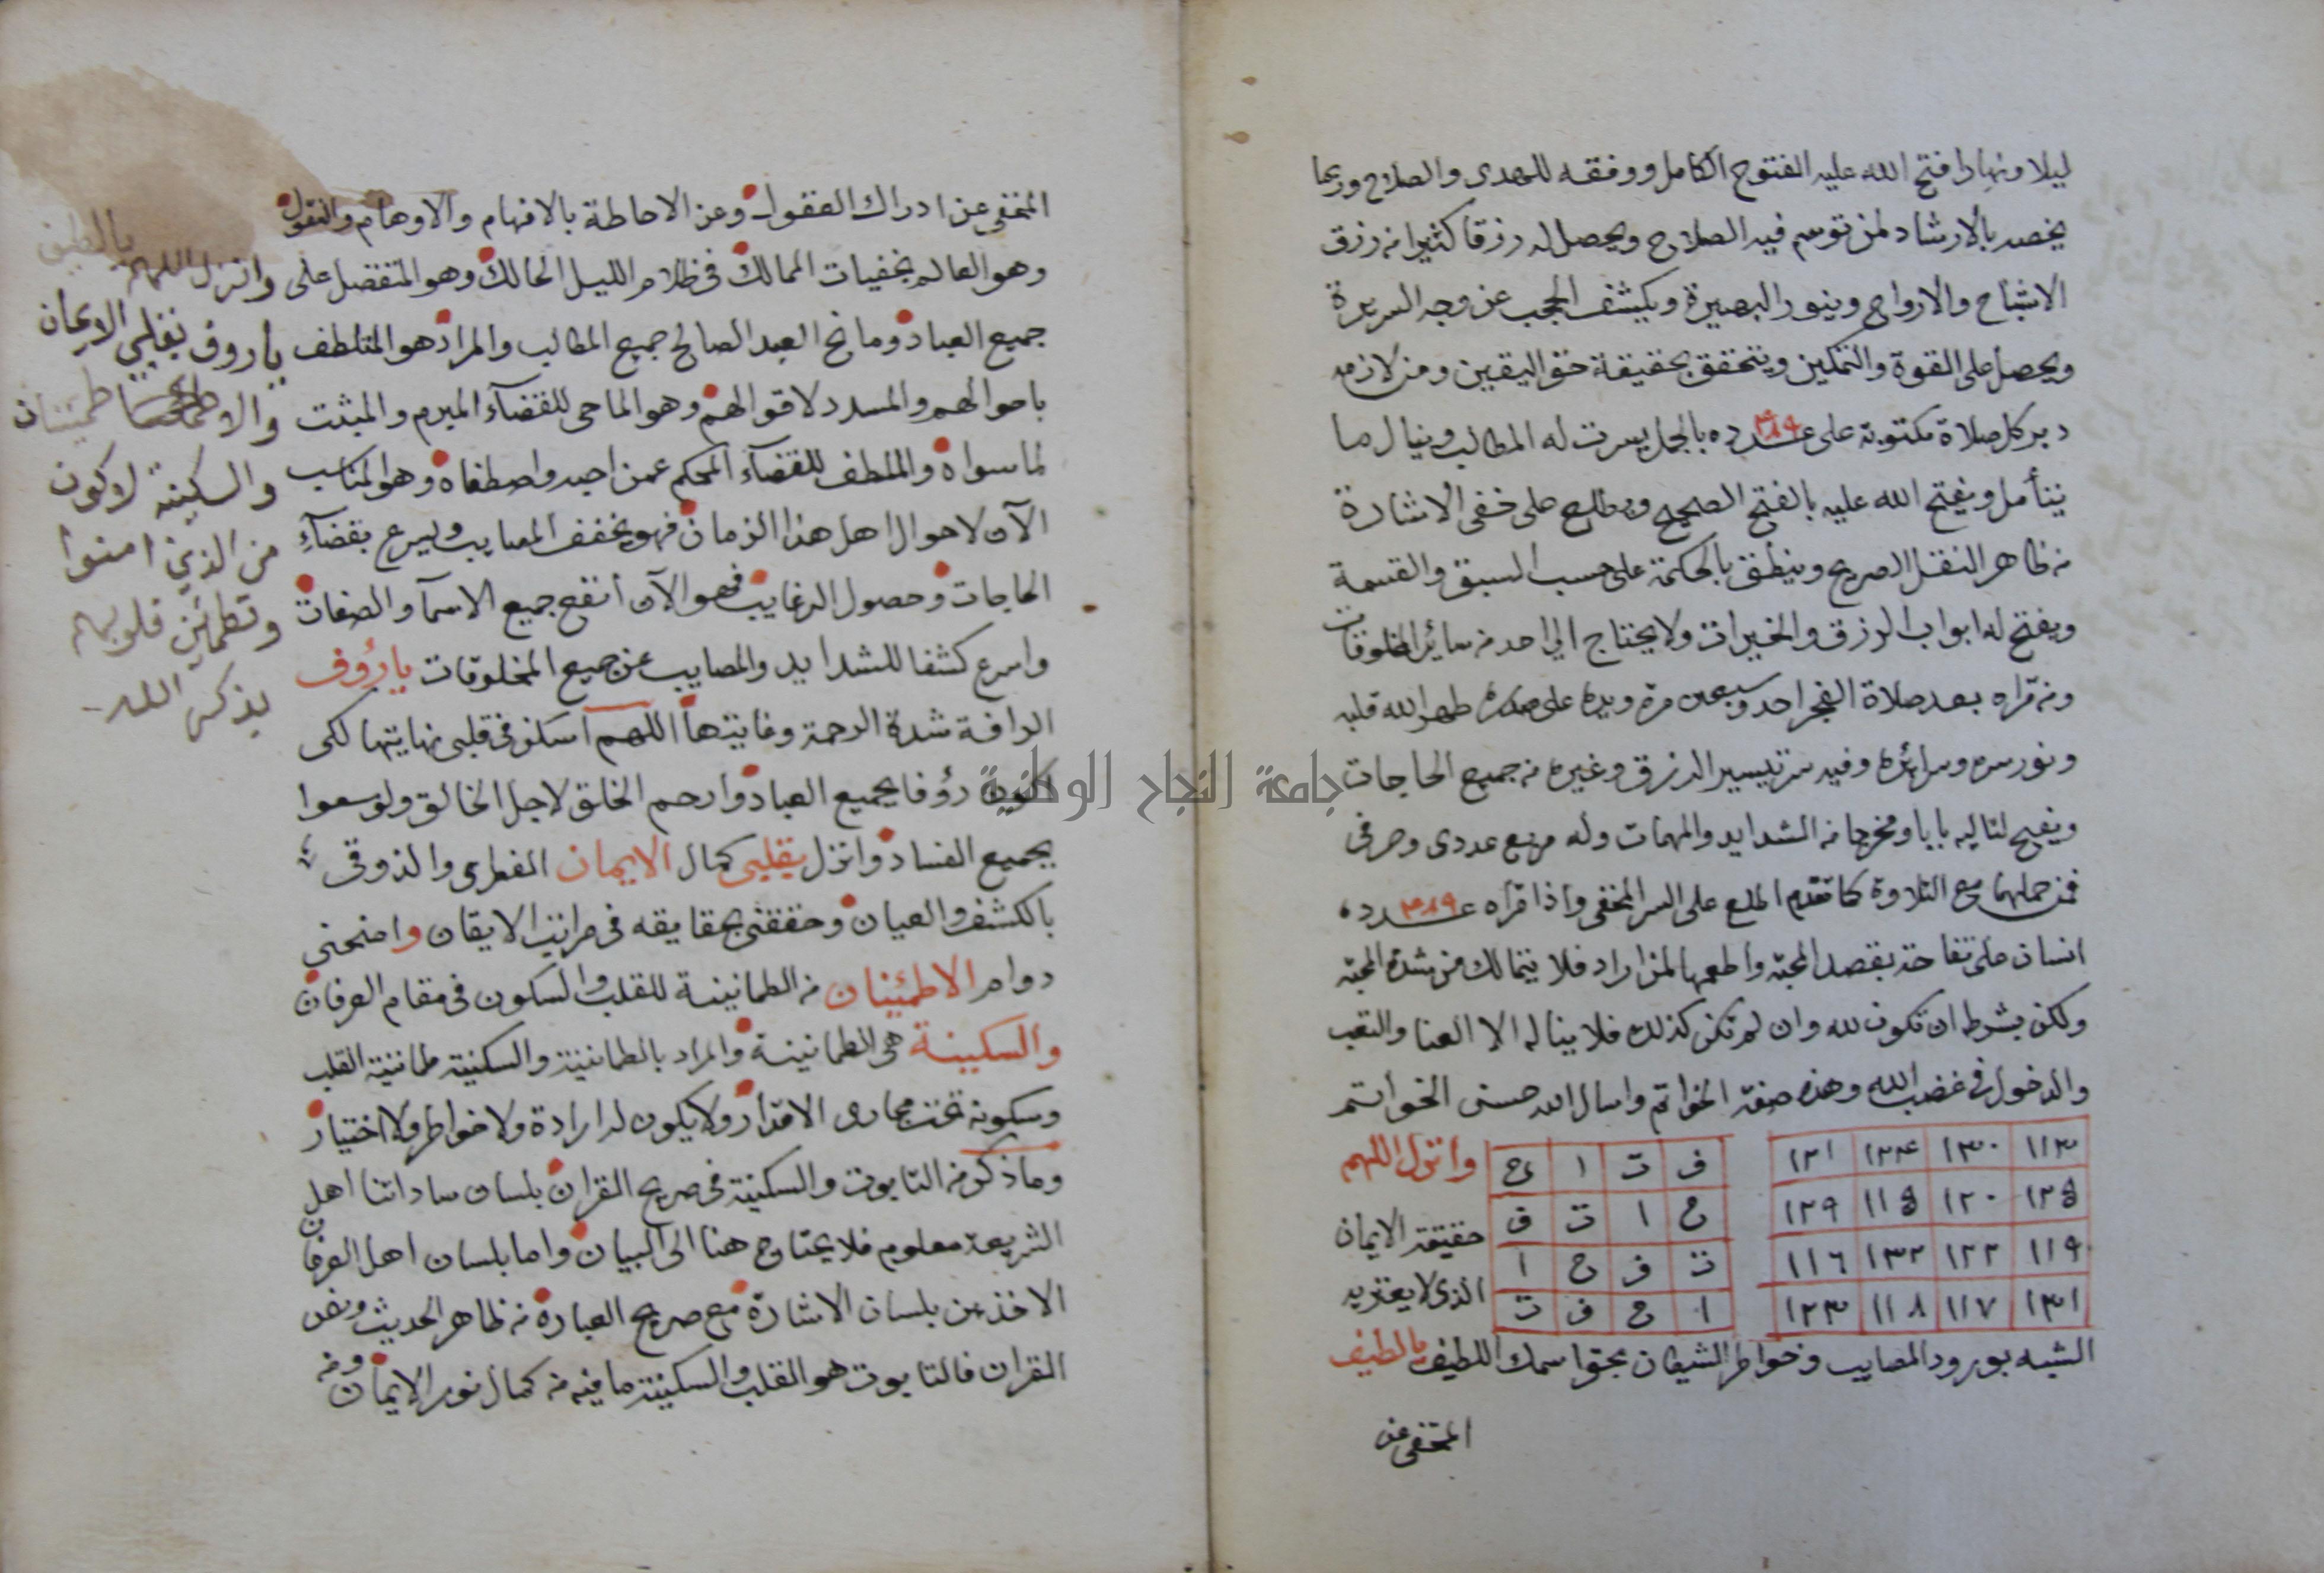 ليلا ونهارا فتح الله عليه الفتوح الكامل ووفقه للهدى والصلاح وربما
يخصه بالارشاد لمن توسم فيه الصلاح ويحصل له رزقا كثيرا من رزق
الاشباح والارواح وينور البصيرة ويكشف الحجب عن وجه السريرة
ويحصل على القوة والتمكين ويتحقق بحقيقة حق اليقين ومن لازمه
دبر كل صلاة مكتوبة على عدده ٤٨٩ بالجمل يسرت له المطالب وينال ما
يتأمل ويفتح الله عليه بالفتح الصحيح ويطلع على خفى الاشارة
من ظاهر النقل الصريح وينطق بالحكمة على حسب السبق والقسمة
ويفتح له ابواب الرزق والخيرات ولا يحتاج الي احد من سائر المخلوقات
ومن قراه بعد صلاة الفجر احد وسبعين مرة ويده على صدره طهر الله قلبه
ونور سره وسرائره وفيه سر تيسير الرزق وغيره من جميع الحاجات
ويفتح لتاليه بابا ومخرجا من الشدايد والمهمات وله مربع عددى وحرفى
فمن حملهما مع التلاوة كما تقدم اطلع على السر المخفى واذا قراه عدده ٤٨٩
انسان على تفاحة بقصد المحبة واطعمها لمن اراد فلا يتمالك من شدة المحبة
ولكن بشرط ان تكون لله وان لم تكن كذلك فلا يناله الا العنا والتعب
والدخول فى غضب الله وهذه صفة الخواتم واسال الله حسنى الخواتم
١٢١ ١٢٤ ١٣٠ ١١٤
١٢٩ ١١٥ ١٢٠ ١٢٥
١١٦ ١٣٢ ١٢٢ ١١٩
١٢٣ ١١٨ ١١٧ ١٣١
ف ت ا ح
ح ا ت ف
ت ف ح ا
ا ح ف ت
وانزل اللهم
حقيقة الايمان
الذى لا يعتريه
الشبه بورود المصايب وخواطر الشيطان بحق اسمك اللطيف يالطيف
المختفى عن
المختفى عن ادراك العقول وعن الاحاطة بالافهام والاوهام والنقول
وهو العالم بخفيات الممالك فى ظلام الليل الحالك وهو المتفضل على
جميع العباد ومانح العبد الصالح جميع المطالب والمراد هو المتلطف
باحوالهم والمسدد لاقوالهم وهو الماحى للقضآء المبرم والمثبت
لما سواه والملطف للقضآء المحكم عمن احبه واصطفاه وهو المناسب
الآن لاحوال اهل هذا الزمان فهو يخفف المصايب ويسرع بقضآء
الحاجات وحصول الرغايب فهو الآن أنفع جميع الاسمآ والصفات
واسرع كشفا للشدايد والمصايب عن جميع المخلوقات يارؤف
الرافة شدة الرحمة وغايتها اللهم اسكن فى قلبى نهايتها لكى
اكون رؤفا بجميع العباد وارحم الخلق لاجل الخالق ولو سعوا
بجميع الفساد وانزل بقلبى كمال الايمان الفطرى والذوقى
بالكشف والعيان وحققنى بحقايقه فى مراتب الايقان وامنحنى
دوام الاطمئنان من الطمانينة للقلب والسكون فى مقام العرفان
والسكينة هى الطمانينة والمراد بالطمانينة والسكينة طمانينة القلب
وسكونه تحت مجارى الاقدار ولا يكون له ارادة ولا خواطر ولا اختيار
وما ذكر من التابوت والسكينة فى صريح القران بلسان ساداتنا اهل
الشريعة معلوم فلا يحتاج هنا الى البيان واما بلسان اهل العرفان
الاخذين بلسان الاشارة مع صريح العبارة من ظاهر الحديث ونص
القران فالتابوت هو القلب والسكينة ما فيه من كمال نور الايمان ومن
وانزل اللهم يالطيف
يارؤف بقلبي الايمان
والاطمئنان
والسكينة لاكون
من الذين امنوا
وتطمئن قلوبهم
بذكر الله
جامعة النجاح الوطنية